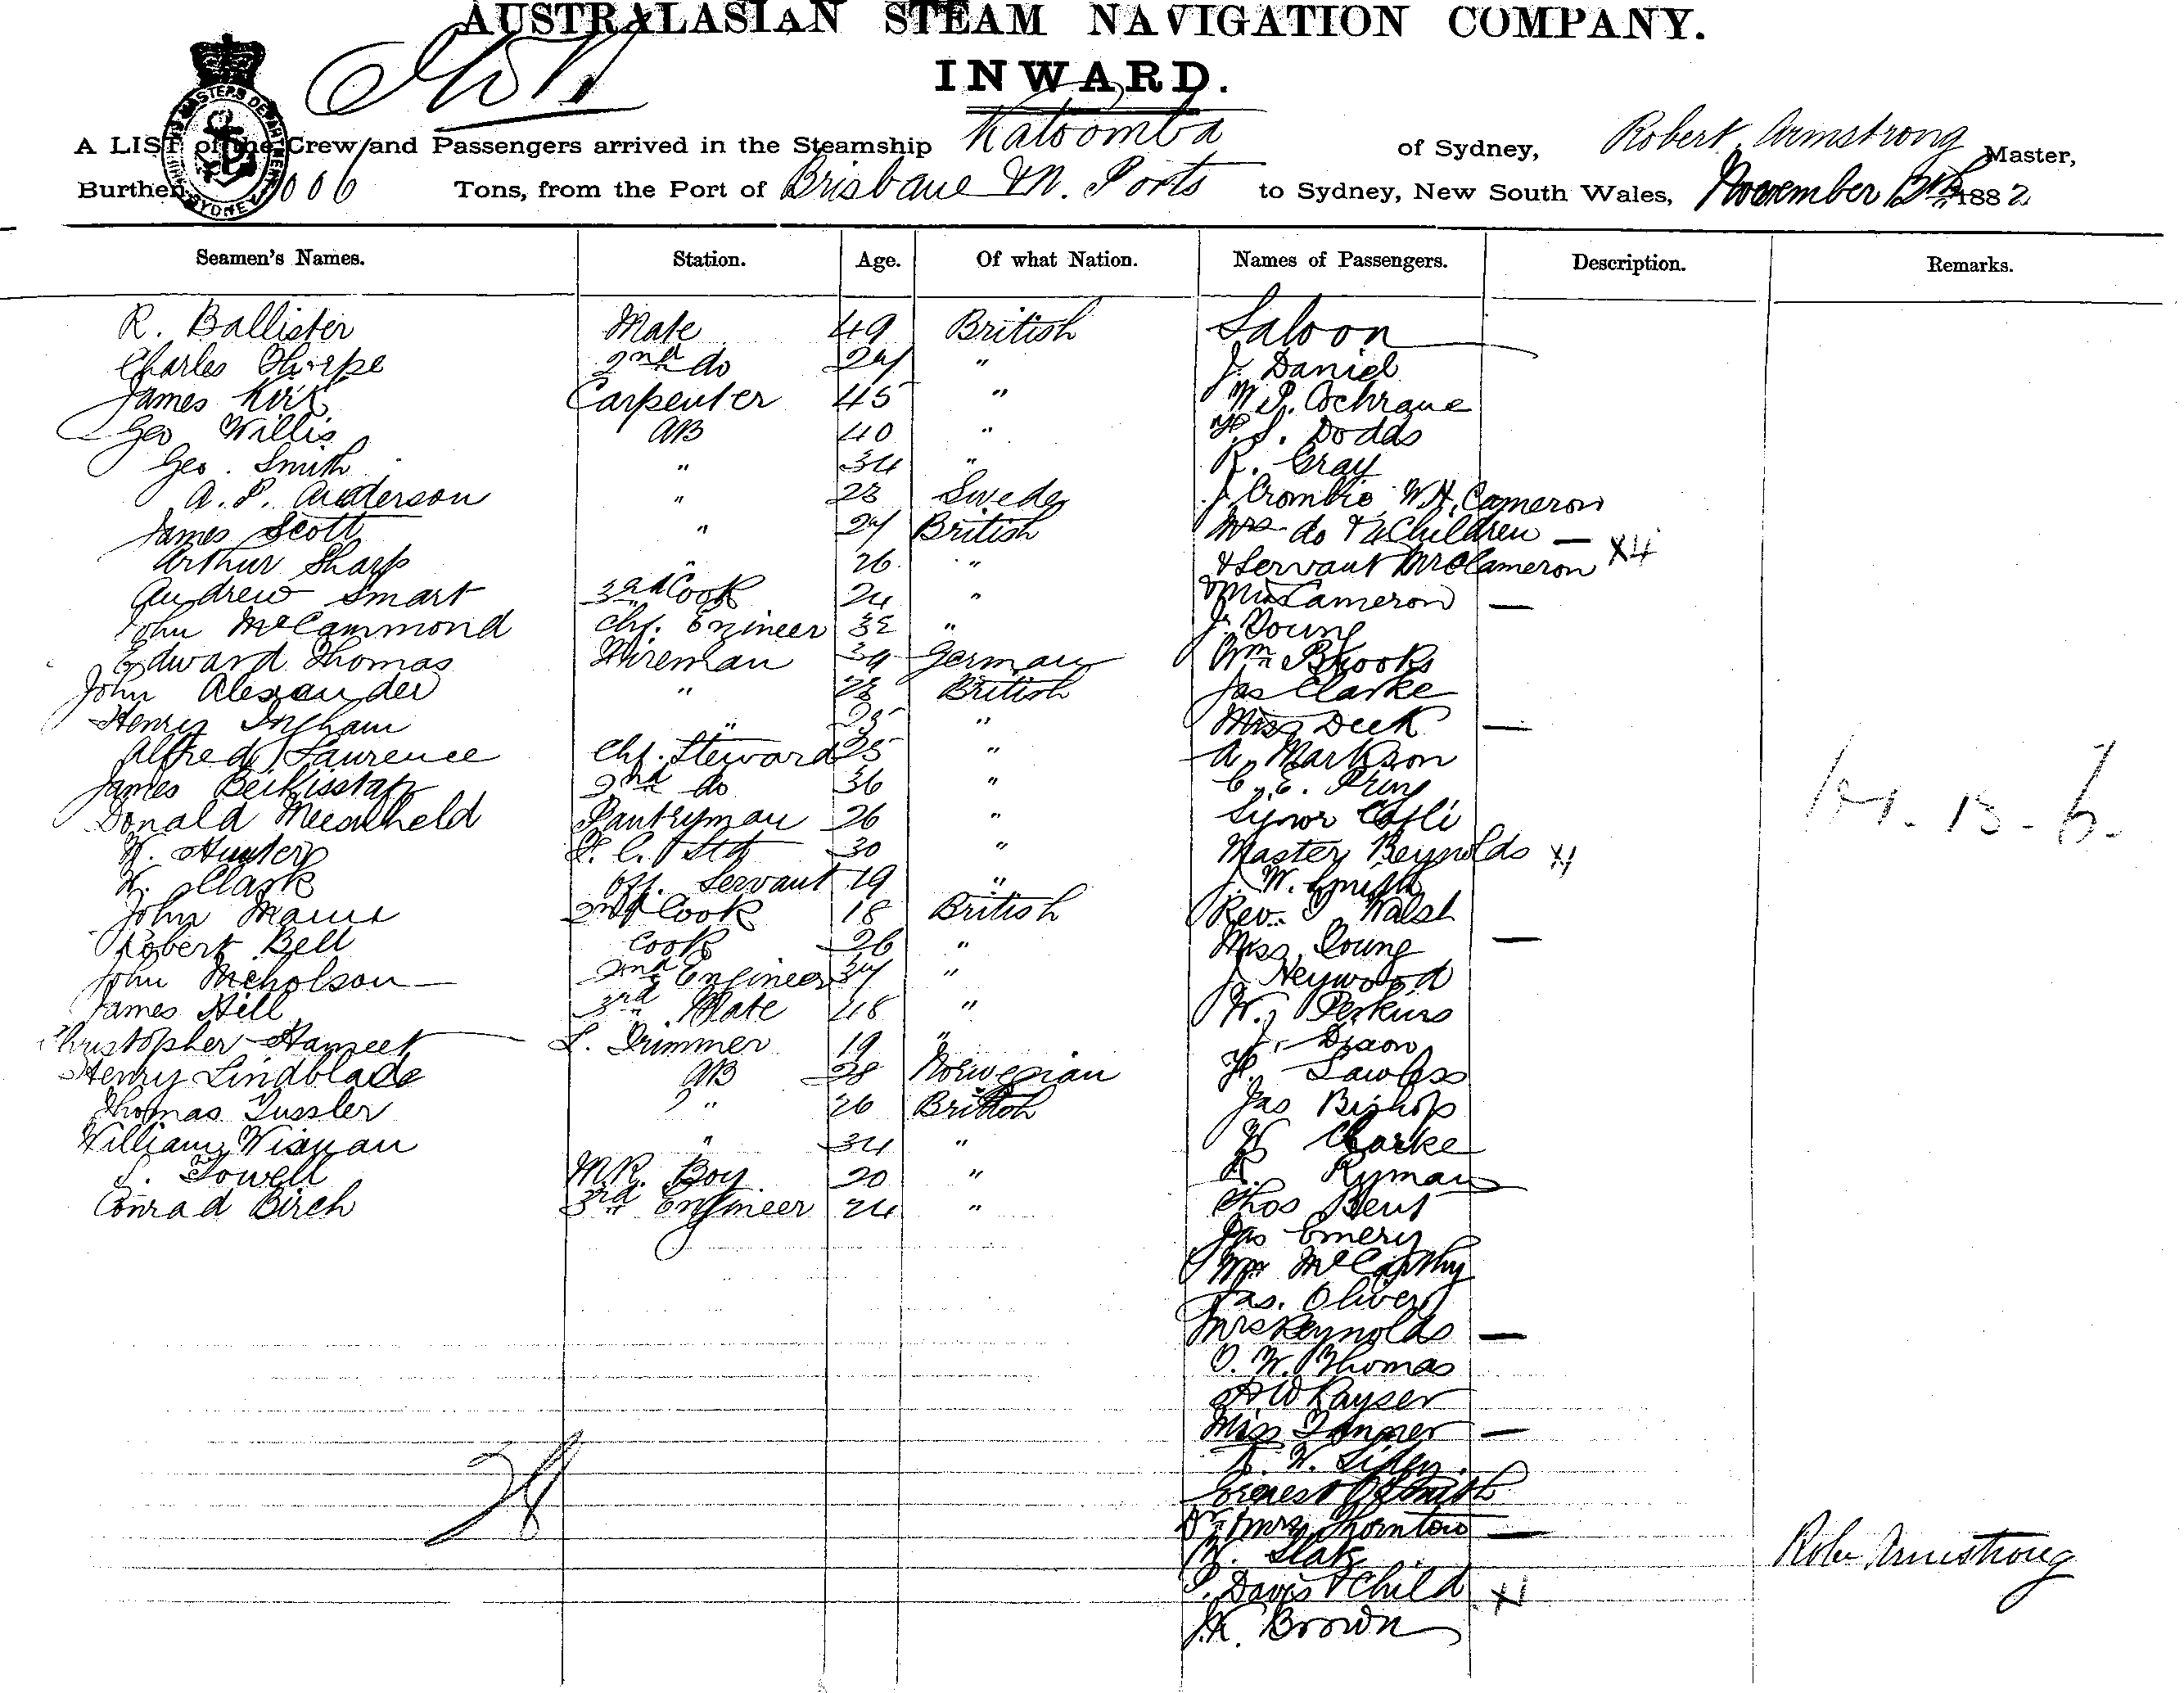 AUSTRALASIAN STEAM NAVIGATION COMPANY.
INWARD.
A LIST of the Crew and Passengers arrived in the Steamship Katoomba of Sydney, Robert Armstrong Master,
Burthen 1006 Tons, from the Port of Brisbane & N. Ports to Sydney, New South Wales, November 13th 1882
Seamen's Names. Station. Age. Of what Nation. Names of Passengers. Description. Remarks.
R. Ballister Mate 49 British Saloon
Charles Thorpe 2nd do " J. Daniel
James Kirk Carpenter 45 " Cochrane
Geo Willis AB 40 " Dodds
Geo. Smith " 34 " R. Gray
A. P. Anderson " 28 Swede J Crombie W.H. Cameron
James Scott " British Mrs do Children —
Arthur Sharp " 26 " & Servant Cameron X4
Andrew Smart 3rd Cook 24 " Cameron —
John McCammond Chf. Engineer " J. Young
Edward Thomas Fireman 39 German Wm Brooks
John Alexander " 28 British Jas Clarke
Henry Ingham " " Miss Deek —
Alfred Laurence Chf. Steward 25 " A. Markson
James 2nd do 36 " C. E.
Donald Pantryman 26 "
W. Hunter 30 " Master Reynolds X1
W. Clark Off. Servant 19 " J. W. Smith
John 2nd Cook 18 British Rev. Walsh
Robert Bell Cook 26 " Miss Young —
John Nicholson 2nd Engineer " J Heywood
James Hill 3rd Mate 48 " W. Perkins
Christopher Trimmer 19 " J. Dixon
Henry Lindblade AB 28 Norwegian H. Lawless
Thomas Tussler " 26 British Jas Bishop
William Wisman " 34 " W Clarke
S. Towell M.R. Boy 20 " R. Ryman
Conrad Birch 3rd Engineer 24 " Thos Bent
Jas Emery
Wm McCarthy
Jas. Oliver
Mrs Reynolds —
O. W. Thomas
Kayser
Miss Tanner —
Ernest Smith
Dr & Mrs Thornton —
Robt Armstrong
P. Davis & Child X1
Brown
28